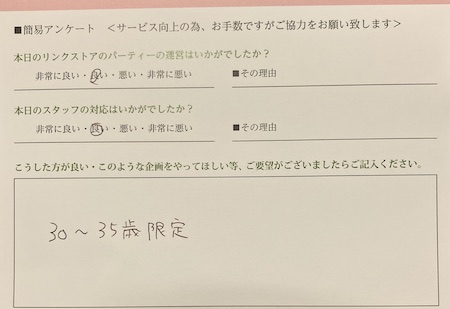 ■簡易アンケート　＜サービス向上の為、お手数ですがご協力をお願い致します＞
本日のリンクストアのパーティーの運営はいかがでしたか？
非常に良い・良い・悪い・非常に悪い　■その理由
本日のスタッフの対応はいかがでしたか？
非常に良い・良い・悪い・非常に悪い　■その理由
こうした方が良い・このような企画をやってほしい等、ご要望がございましたらご記入ください。
30～35歳限定